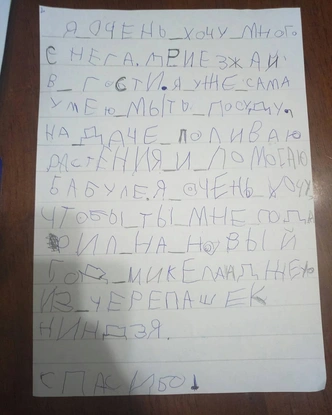 Я_ОЧЕНЬ_ХОЧУ_МНОГО
СНЕГА.ПРИЕЗЖАЙ
В_ГОСТИ.Я_УЖЕ_САМА
УМЕЮ_МЫТЬ_ПОСУДУ.
НА_ДАЧЕ_ПОЛИВАЮ
РАСТЕНИЯ_И_ПОМОГАЮ
БАБУЛЕ.Я_ОЧЕНЬ_ХОЧУ
ЧТОБЫ_ТЫ_МНЕ_ПОДА
РИЛ_НА_НОВЫЙ
ГОД_МИКЕЛАНДЖЕЛО
ИЗ_ЧЕРЕПАШЕК
НИНДЗЯ.
СПАСИБО!